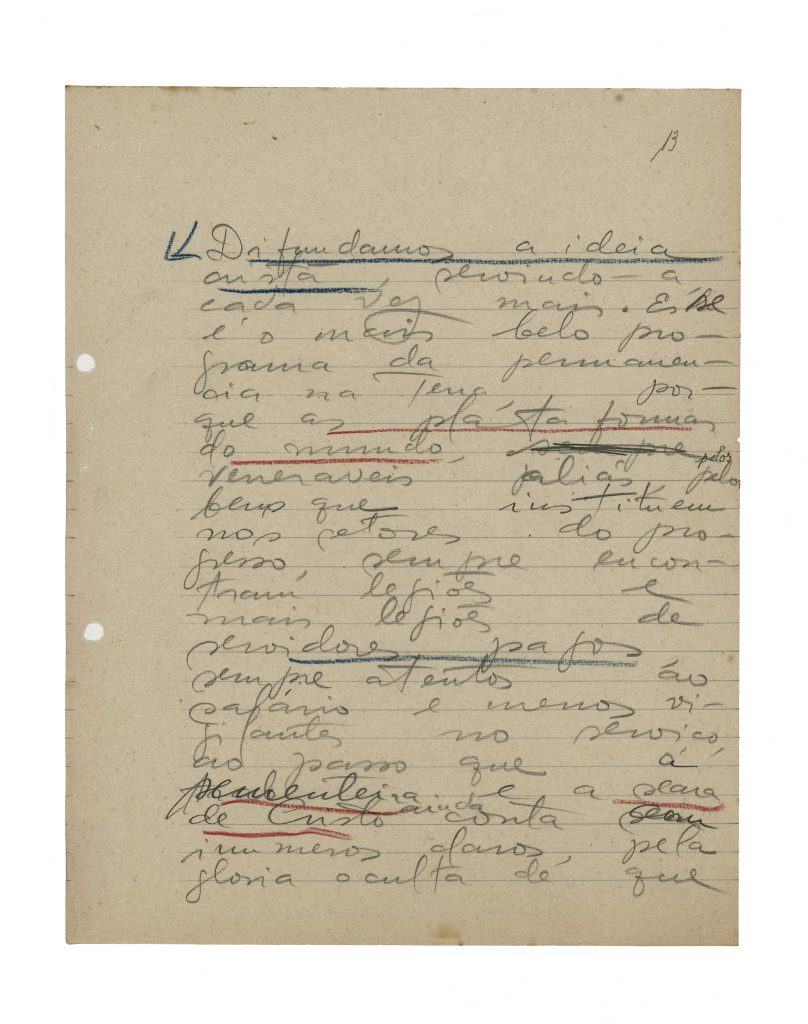 13
Difundamos a ideia
cristã, servindo-a
cada vez mais. Esse
é o mais belo pro-
grama da permanen-
cia na Terra, por-
que as pláta formas
do mundo, sempre
veneraveis aliás, pelos
bens que instituem
nos setores do pro-
gresso, sempre encon-
tram legiões e
mais legiões de
servidores pagos
sempre atentos ao
salário e menos vi-
gilantes no serviço,
ao passo que á
sementeira e a seara
de Cristo ainda conta com
inumeros claros, pela
gloria oculta de que